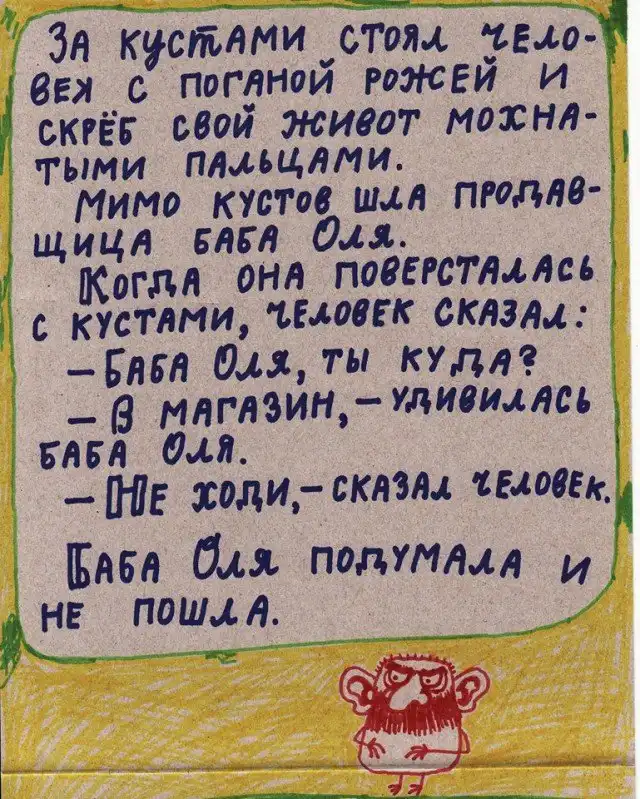 За кустами стоял чело-
век с поганой рожей и
скрёб свой живот мохна-
тыми пальцами.
Мимо кустов шла продав-
щица баба Оля.
Когда она поверсталась
с кустами, человек сказал:
— Баба Оля, ты куда?
— В магазин, — удивилась
баба Оля.
— Не ходи, — сказал человек.
Баба Оля подумала и
не пошла.